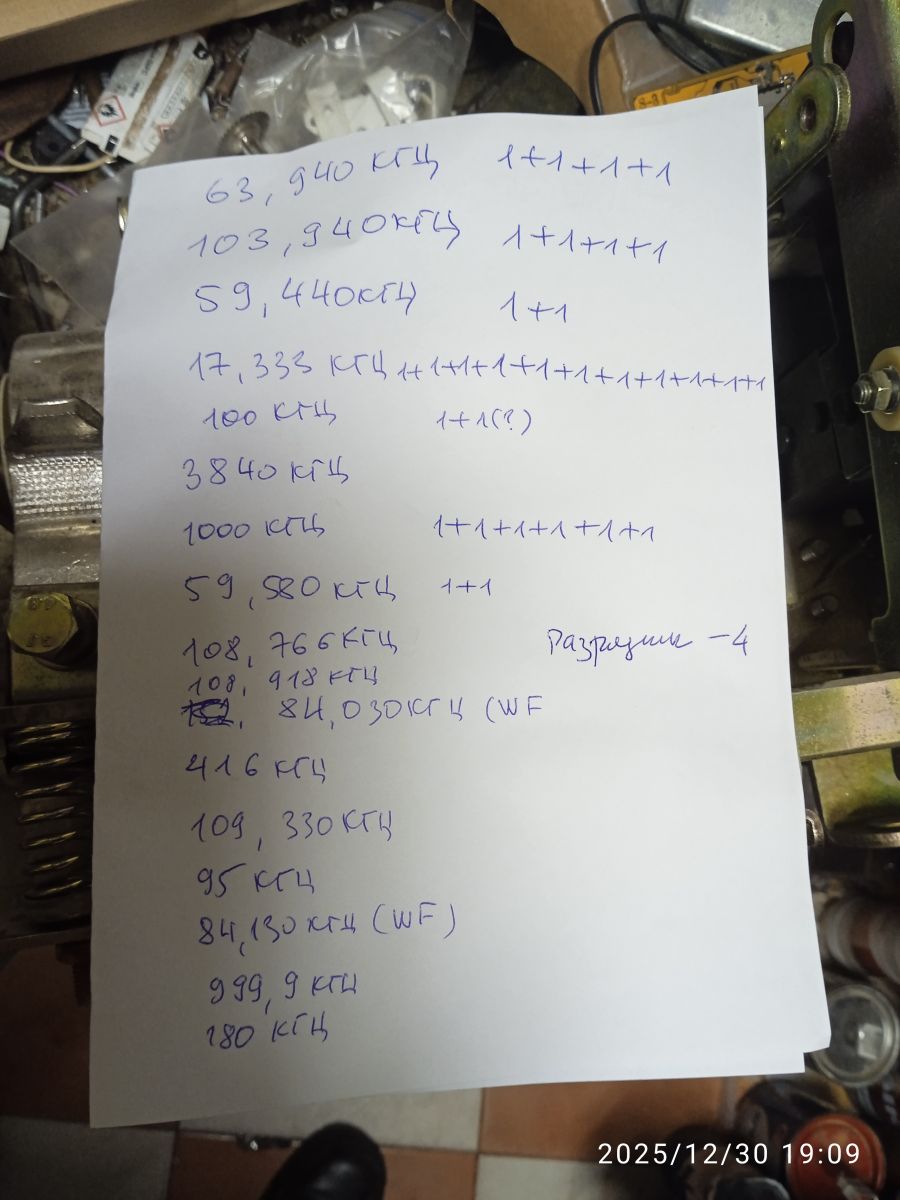 8-8
63,940 КГЦ 1+1+1+1
103,940КГЦ 1+1+1+1
59,440КГЦ 1+1
17,333 КГЦ 1+1+1+1+1+1+1+1+1+1+1+1
100 КГЦ 1+1(?)
3840 КГЦ
1000 КГЦ 1+1+1+1+1+1
59,580 КГЦ 1+1
108,766КГЦ Разрядник -4
108,918 КГЦ
84,030КГЦ (WF
416 КГЦ
109,330КГЦ
95 КГЦ
84,130 КГЦ (WF)
999,9 КГЦ
180 КГЦ
2025/12/30 19:09